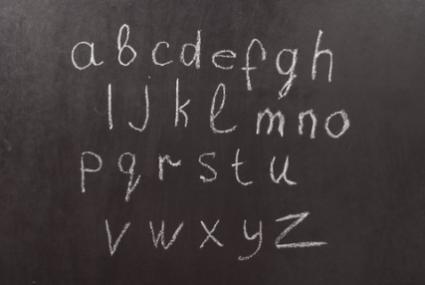 a b c d e f g h
I j k l m n o
p q r s t u
v w x y z